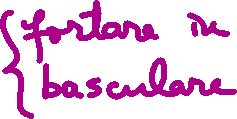 fortare in
basculare